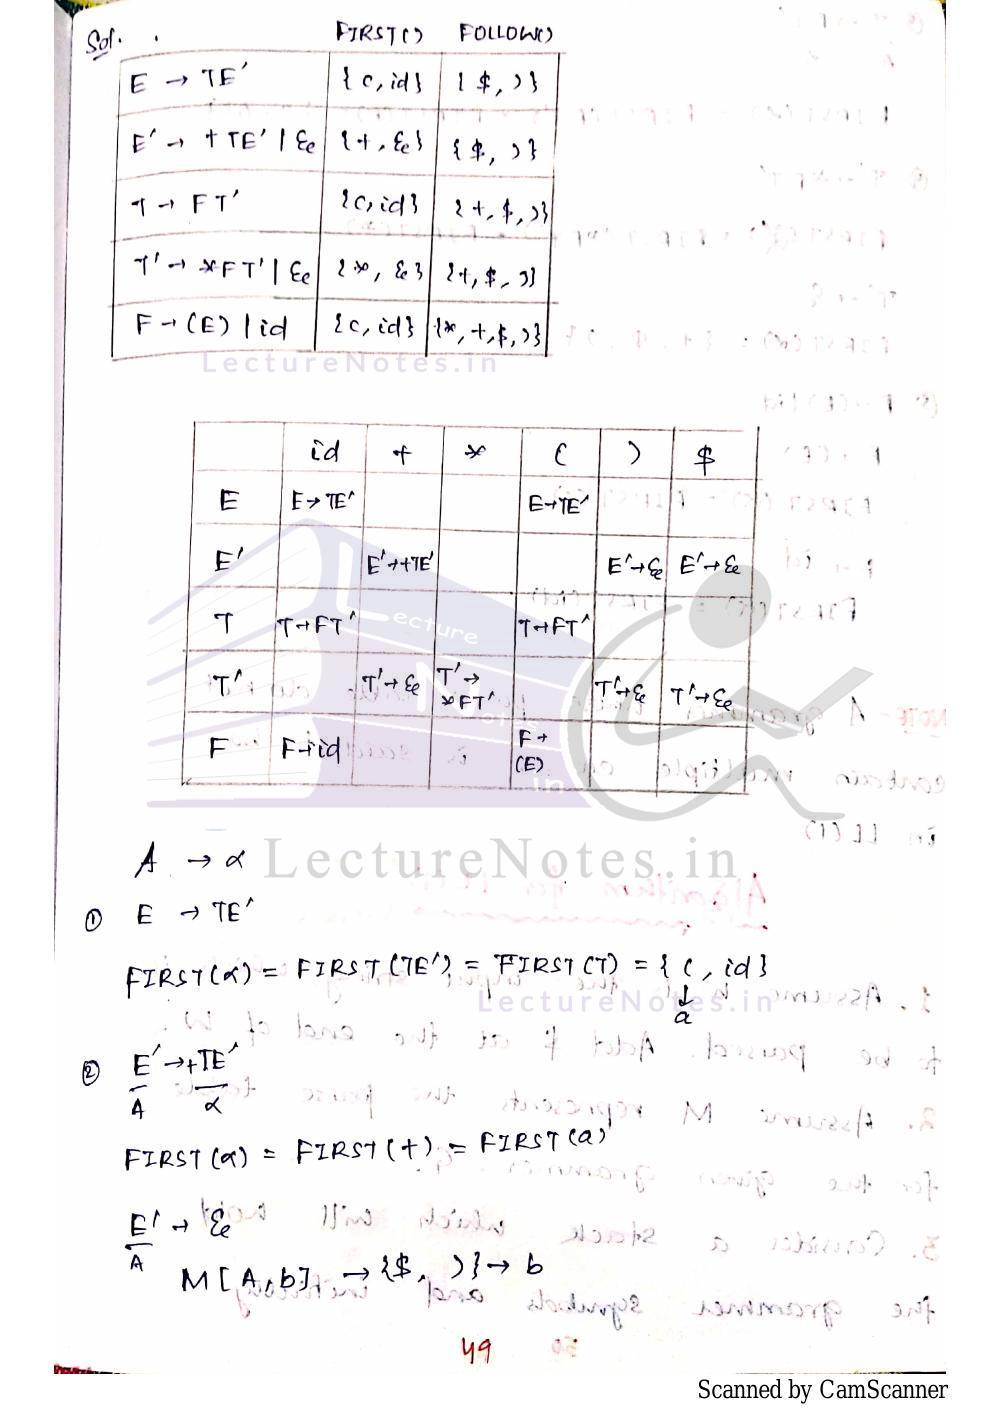 Sol. FIRST() FOLLOW()
E → TE' {(, id} {$, )}
E' → +TE' | ε {+, ε} {$, )}
T → FT' {(, id} {+, $, )}
T' → *FT' | ε {*, ε} {+, $, )}
F → (E) | id {(, id} {*, +, $, )}
LectureNotes.in
id + * ( ) $
E E→TE' E→TE'
E' E'→+TE' E'→ε E'→ε
T T→FT' T→FT'
T' T'→ε T'→*FT' T'→ε T'→ε
F F→id F→(E)
Lecture
Notes
in
A → α
LectureNotes.in
① E → TE'
FIRST(α) = FIRST(TE') = FIRST(T) = {(, id}
↓
LectureNotes.in
a
② E' →+TE'
A α
FIRST(α) = FIRST(+) = FIRST(a)
E' → ε
A
M[A,b] → {$, )} → b
49
Scanned by CamScanner